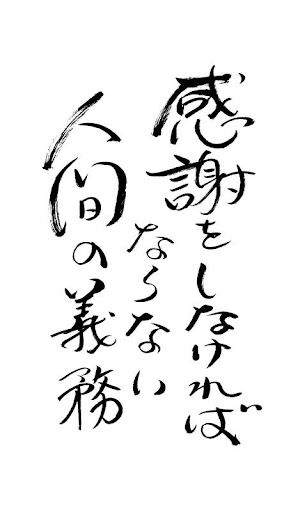 感謝をしなければ
ならない
人間の義務